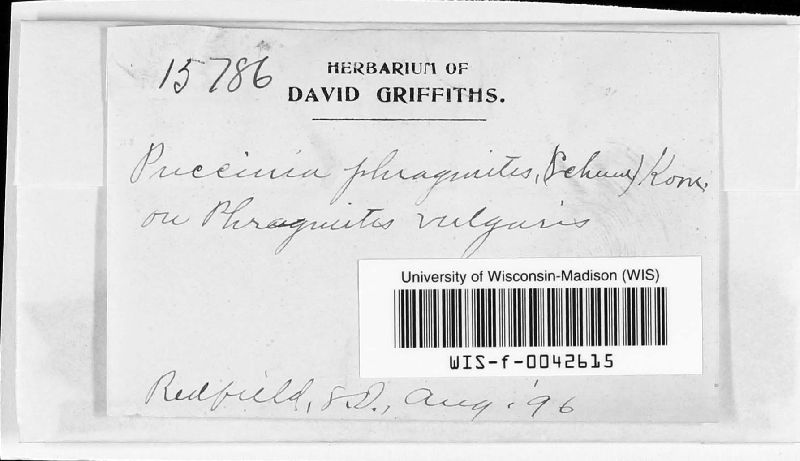 15786
HERBARIUM OF
DAVID GRIFFITHS.
Puccinia phragmites, (Schum) Korn.
on Phragmites vulgaris
University of Wisconsin-Madison (WIS)
WIS-f-0042615
Redfield, S.D., Aug. '96